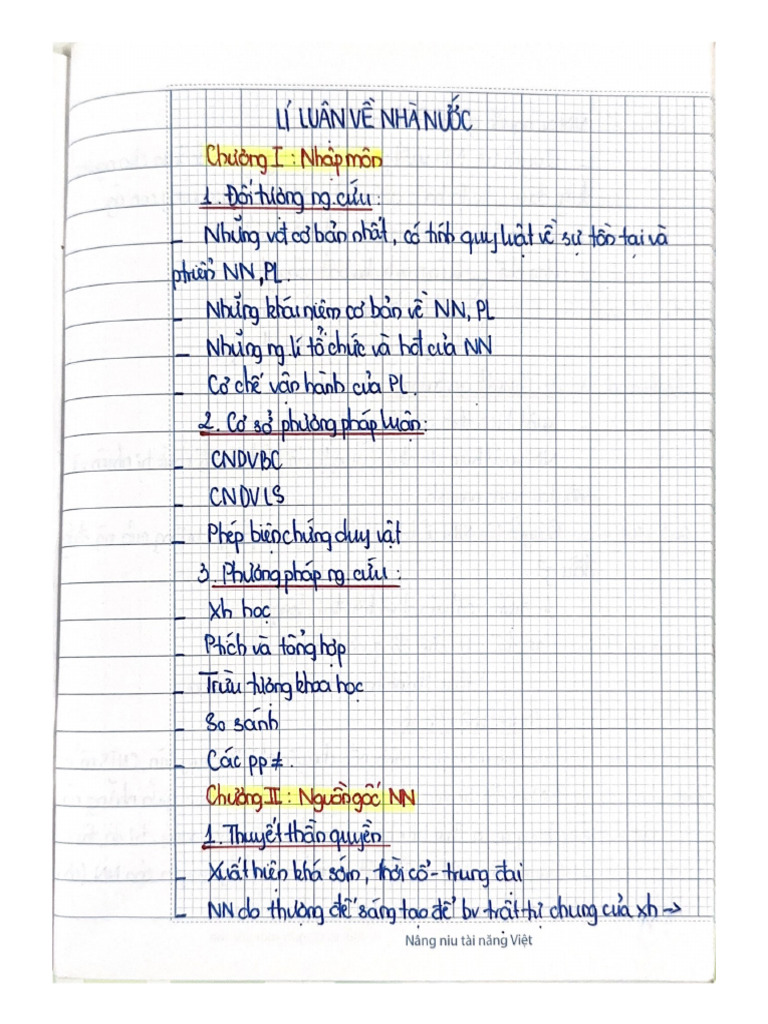 LÍ LUẬN VỀ NHÀ NƯỚC
Chương I : Nhập môn
1. Đối tượng ng.cứu :
- Những vđ cơ bản nhất, có tính quy luật về sự tồn tại và
ptriển NN, PL.
- Những khái niệm cơ bản về NN, PL
- Những ng.lí tổ chức và hđ của NN
- Cơ chế vận hành của PL.
2. Cơ sở phương pháp luận :
- CNDVBC
- CNDVLS
- Phép biện chứng duy vật
3. Phương pháp ng.cứu :
- Xh học
- Ptích và tổng hợp
- Trừu tượng khoa học
- So sánh
- Các pp ≠.
Chương II : Nguồn gốc NN
1. Thuyết thần quyền
- Xuất hiện khá sớm, thời cổ - trung đại
- NN do thượng đế sáng tạo để bv trật tự chung của xh →
Nâng niu tài năng Việt